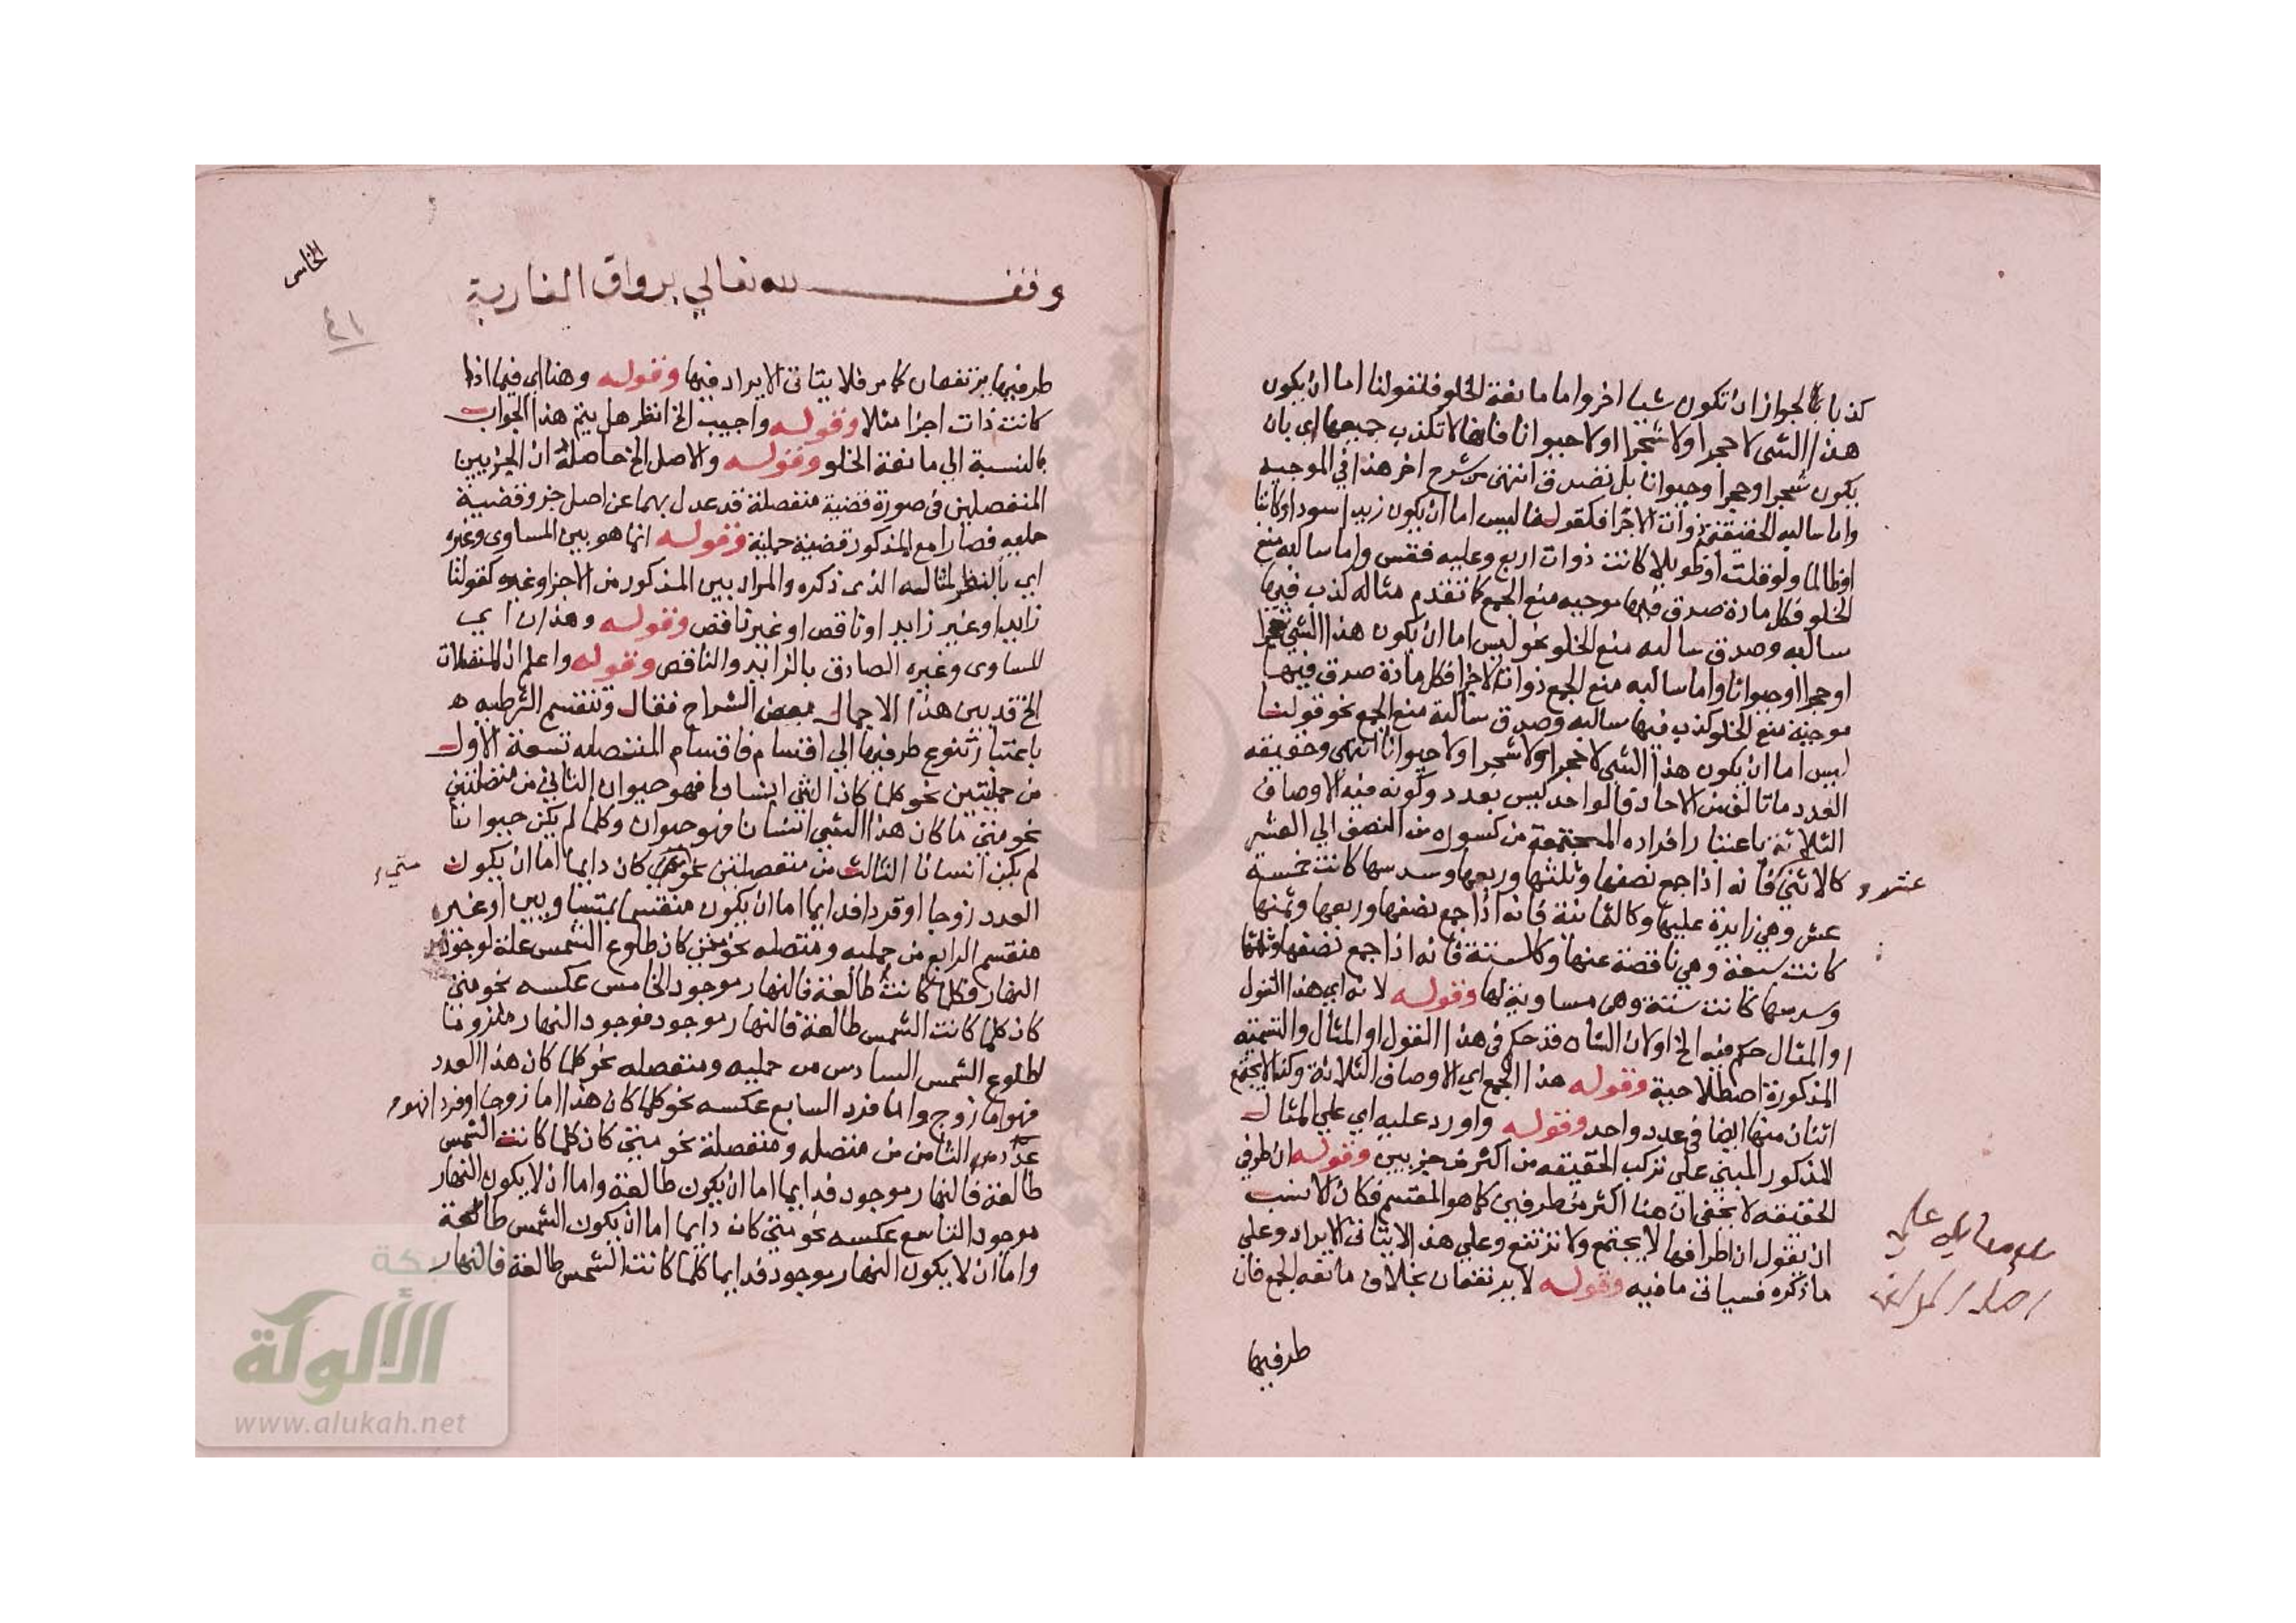 كذبا بالجواز ان تكون شيا اخر واما مانعة الخلو فلقولنا اما ان يكون
هذا الشى لا حجرا ولا شجرا او لا حيوانا فانها لا تكذب جميعها اى بان
يكون شجرا وحجرا وحيوانا بل تصدق انتهى من شرح اخر هذا في الموجبه
واما سالبه الحقيقة ذوات الاجزا فكقولنا ليس اما ان يكون زيد اسود او كاتبا
او ظالما ولو قلت او طويلا كانت ذوات اربع وعليه فقس واما سالبه منع
الخلو فكل مادة صدق فيها موجبه منع الجمع كما تقدم مثاله كذب فيها
سالبه وصدق سالبه منع الخلو نحو ليس اما ان يكون هذا الشى شجرا
او حجرا او حيوانا واما سالبه منع الجمع ذوات الاجزا فكل مادة صدق فيها
موجبة منع الخلو كذب فيها سالبه وصدق سالبة منع الجمع نحو قولنا
ليس اما ان يكون هذا الشى لا حجرا ولا شجرا ولا حيوانا انتهى وحقيقه
العدد ما تالف من الاحاد فالواحد ليس بعدد وكونه فيه الاوصاف
الثلاثة باعتبار افراده المجتمعة من كسوره من النصف الي العشر
كالاثني فانه اذا جمع نصفها وثلثها وربعها وسدسها كانت خمسة
عشر
عشر وهي زايدة عليها وكالثمانية فانه اذا جمع نصفها وربعها وثمنها
كانت سبعة وهي ناقصة عنها وكالستة فانه اذا جمع نصفها وثلثها
وسدسها كانت ستة وهى مساوية لها وقوله لانه اي هذا القول
او المثال حكم فيه الخ اولان الشان قد حكم فى هذا القول او المثال والتسمية
المذكورة اصطلاحية وقوله هذا الجمع اي الاوصاف الثلاثة وكذا لا يجتمع
اثنان منها ايضا فى عدد واحد وقوله واورد عليه اي علي المثال
المذكور المبني علي تركب الحقيقه من اكثر من جزيين وقوله ان طرفي
الحقيقه لا يخفي ان هنا اكثر من طرفين كما هو المقسم فكان الانسب
ان يقول ان اطرافها لا يجتمع ولا ترتفع وعلي هذا لا يتاتى الايراد وعلي
ما ذكره فسياتى ما فيه وقوله لا يرتفعان بخلاف مانعه الجمع فان
طرفيها
وقف لله تعالي برواق المغاربة
الخامس
٤١
طرفيها يرتفعان كما مر فلا يتاتى الايراد فيها وقوله وهنا اى فيما اذا
كانت ذات اجزا مثلا وقوله واجيب الخ انظر هل يتم هذا الجواب
بالنسبة الي مانعة الخلو وقوله والاصل الخ حاصله ان الجزيين
المنفصلين فى صورة قضية منفصلة قد عدل بهما عن اصل جزو قضية
حمليه فصارا مع المذكور قضية حملية وقوله انما هو بين المساوى وغيره
اي بالنظر لمثاله الذى ذكره والمراد بين المذكور من الاجزا وغيره كقولنا
زايد او غير زايد او ناقص او غير ناقص وقوله وهذان اي
المساوى وغيره الصادق بالزايد والناقص وقوله واعلم ان المنفصلات
الخ قد بين هذا الاجمال بعض الشراح فقال وتنقسم الشرطيه
باعتبار تنوع طرفيها الي اقسام فاقسام المتصله تسعة الاول
من حمليتين نحو كلما كان الشي انسانا فهو حيوان الثاني من متصلتين
نحو متى ما كان هذا الشي انسانا فهو حيوان وكلما لم يكن حيوانا
لم يكن انسانا الثالث من منفصلتين نحو كان دايما اما ان يكون
متي
العدد زوجا او فردا فدايما اما ان يكون منقسما بمتساويين او غير
منقسم الرابع من حمليه ومتصله نحو متى كان طلوع الشمس علة لوجود
النهار فكلما كانت طالعة فالنهار موجود الخامس عكسه نحو متى
كان كلما كانت الشمس طالعة فالنهار موجود فوجود النهار ملزوما
لطلوع الشمس السادس من حمليه ومنفصله نحو كلما كان هذا العدد
فهو اما زوج واما فرد السابع عكسه نحو كلما كان هذا اما زوجا او فردا فهو
عدد الثامن من متصله ومنفصلة نحو متى كان كلما كانت الشمس
طالعة فالنهار موجود فدايما اما ان يكون طالعة واما ان لا يكون النهار
موجود التاسع عكسه نحو متى كان دايما اما ان يكون الشمس طالعة
واما ان لا يكون النهار موجود فدايما كلما كانت الشمس طالعة فالنهار
شبكة
الألوكة
www.alukah.net